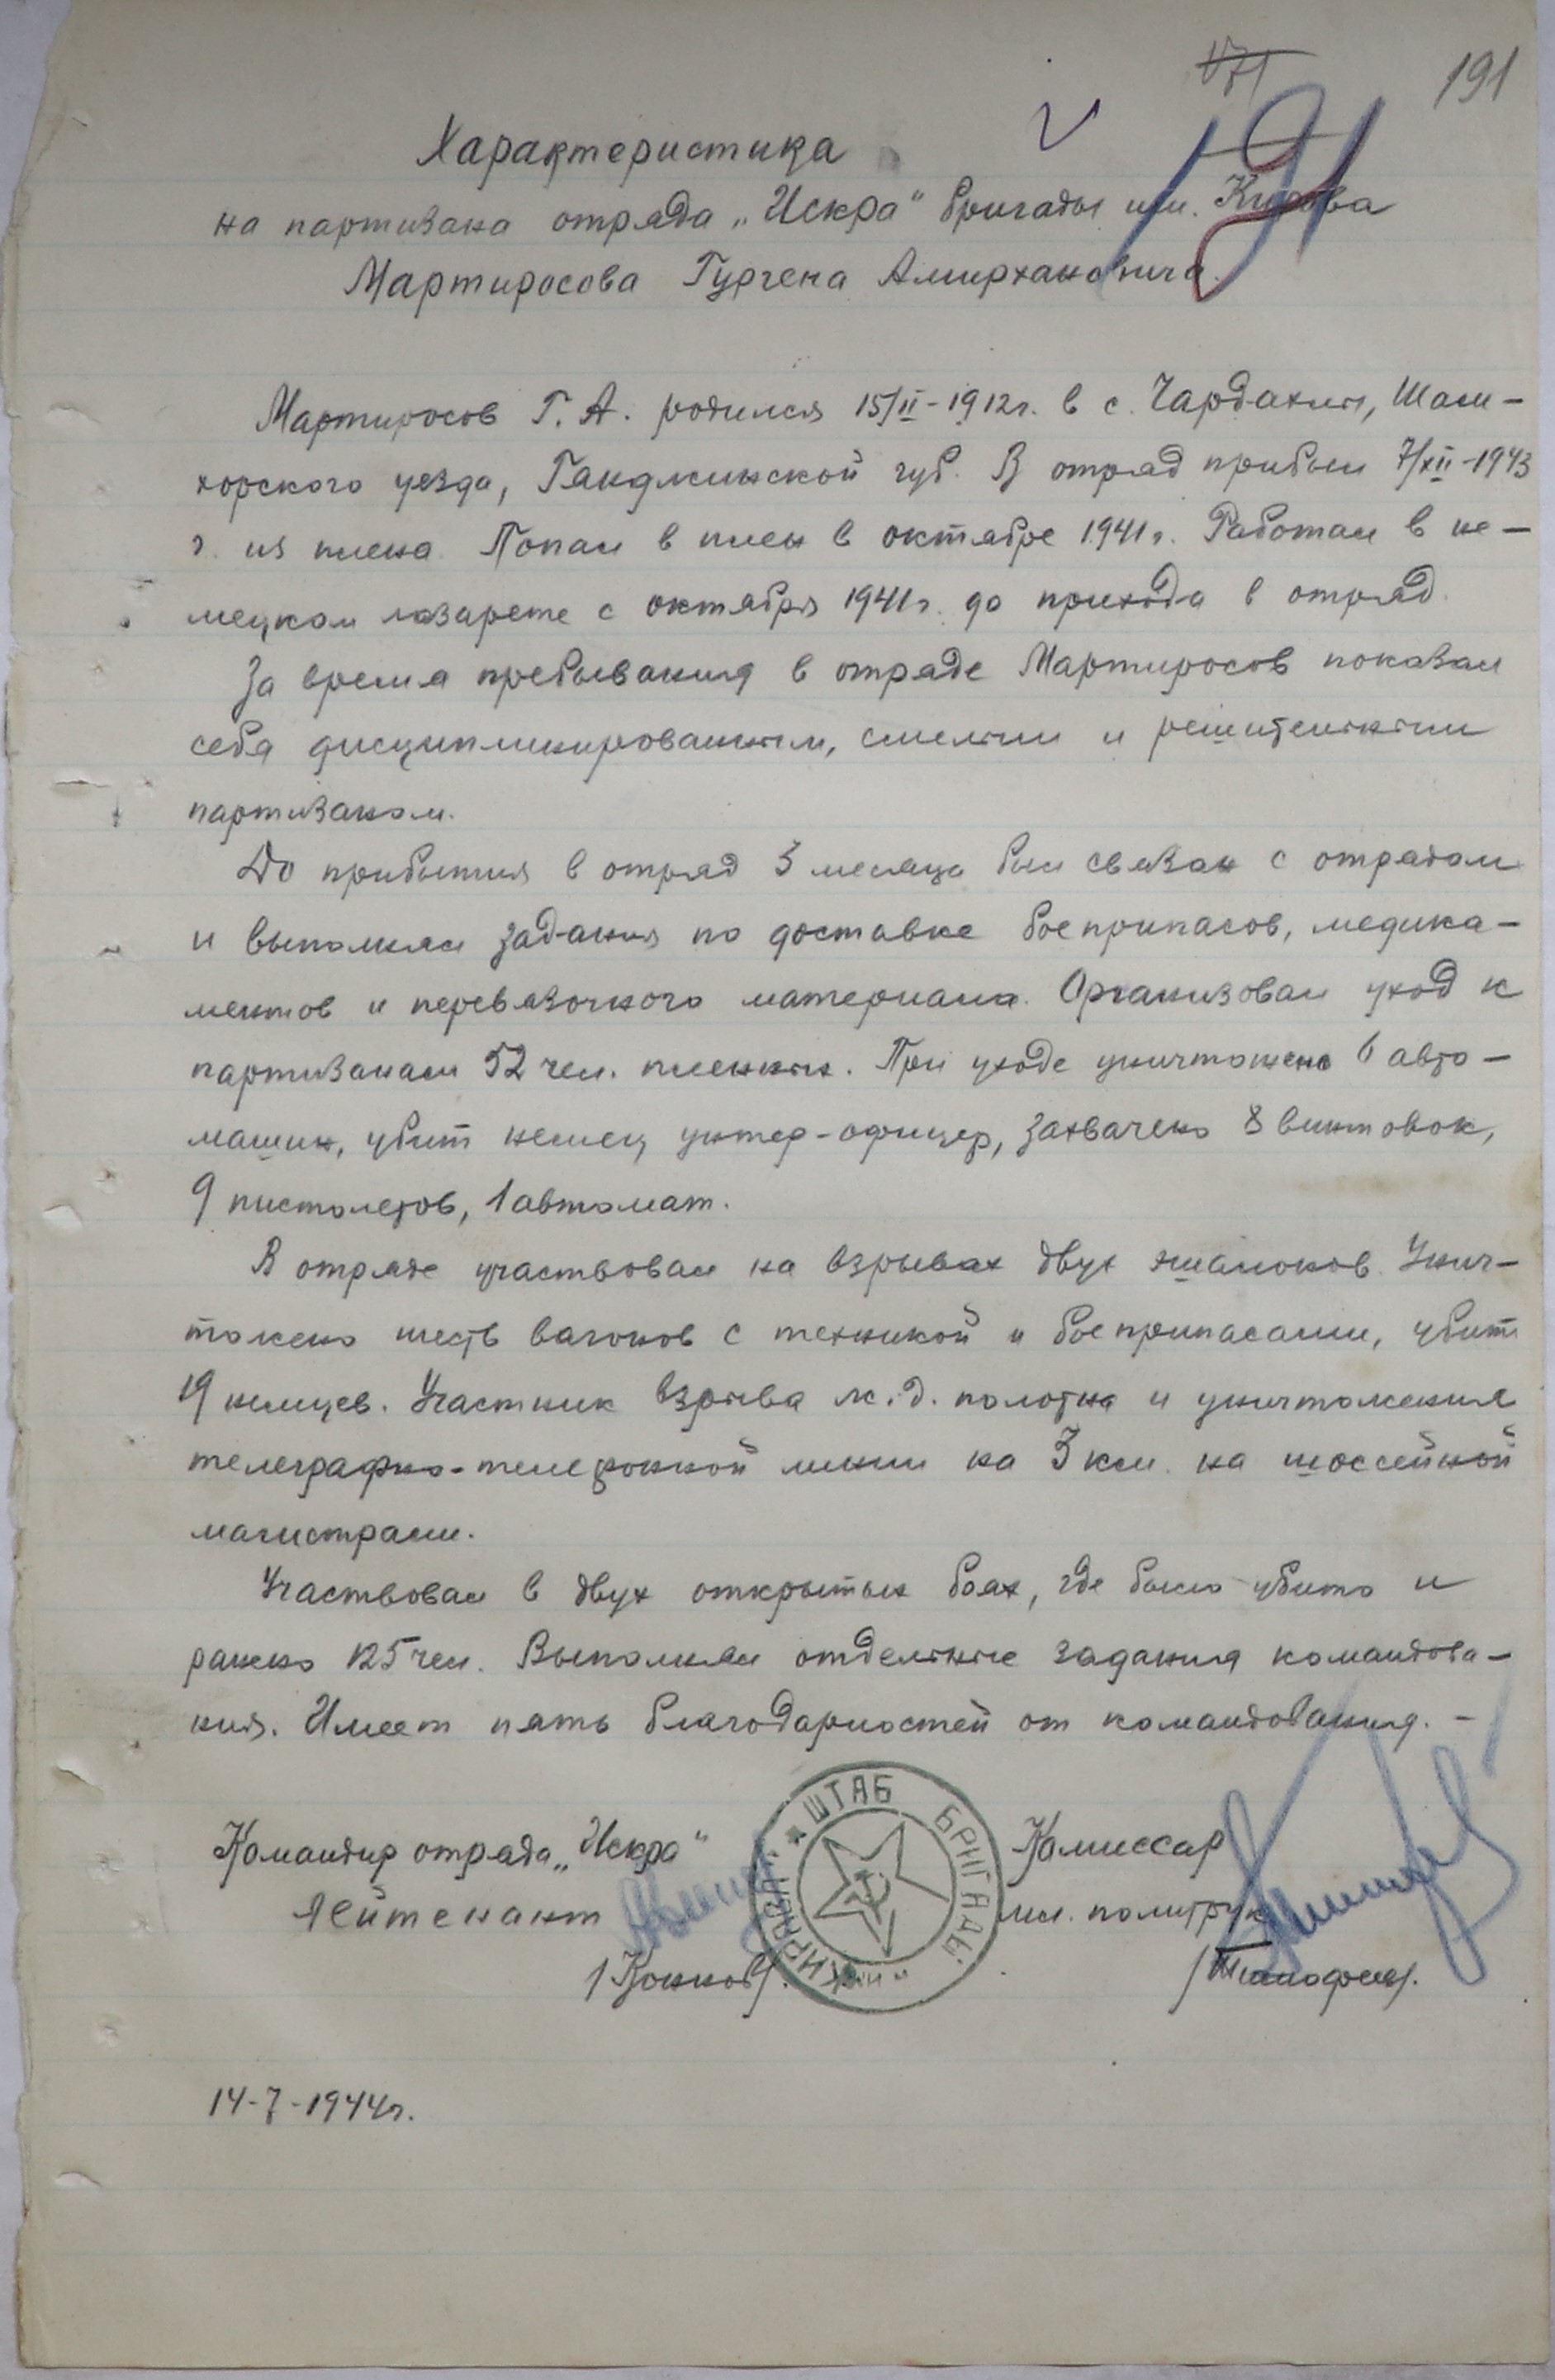 191
Характеристика
на партизана отряда „Искра“ бригады им. Кирова
Мартиросова Гургена Амирхановича.
191
Мартиросов Г. А. родился 15/II-1912г. в с. Чардахлы, Шам-
хорского уезда, Ганджинской губ. В отряд прибыл 7/XII-1943
г. из плена. Попал в плен в октябре 1941г. Работал в не-
мецком лазарете с октября 1941г. до прихода в отряд.
За время пребывания в отряде Мартиросов показал
себя дисциплинированным, смелым и решительным
партизаном.
До прибытия в отряд 3 месяца был связан с отрядом
и выполнял задания по доставке боеприпасов, медика-
ментов и перевязочного материала. Организовал уход к
партизанам 52 чел. пленных. При уходе уничтожено 6 авто-
машин, убит немец унтер-офицер, захвачено 8 винтовок,
9 пистолетов, 1 автомат.
В отряде участвовал на взрывах двух эшалонов. Унич-
тожено шесть вагонов с техникой и боеприпасами, убит
19 немцев. Участник взрыва ж.д. полотна и уничтожения
телеграфно-телефонной линии на 3 км. на шоссейной
магистрали.
Участвовал в двух открытых боях, где было убито и
ранено 125 чел. Выполнял отдельные задания командова-
ния. Имеет пять благодарностей от командования. -
Командир отряда „Искра“
Лейтенант
Комиссар
мл. политрук
ШТАБ БРИГАДЫ им. "КИРОВА"
/Тимофеев/.
14-7-1944г.